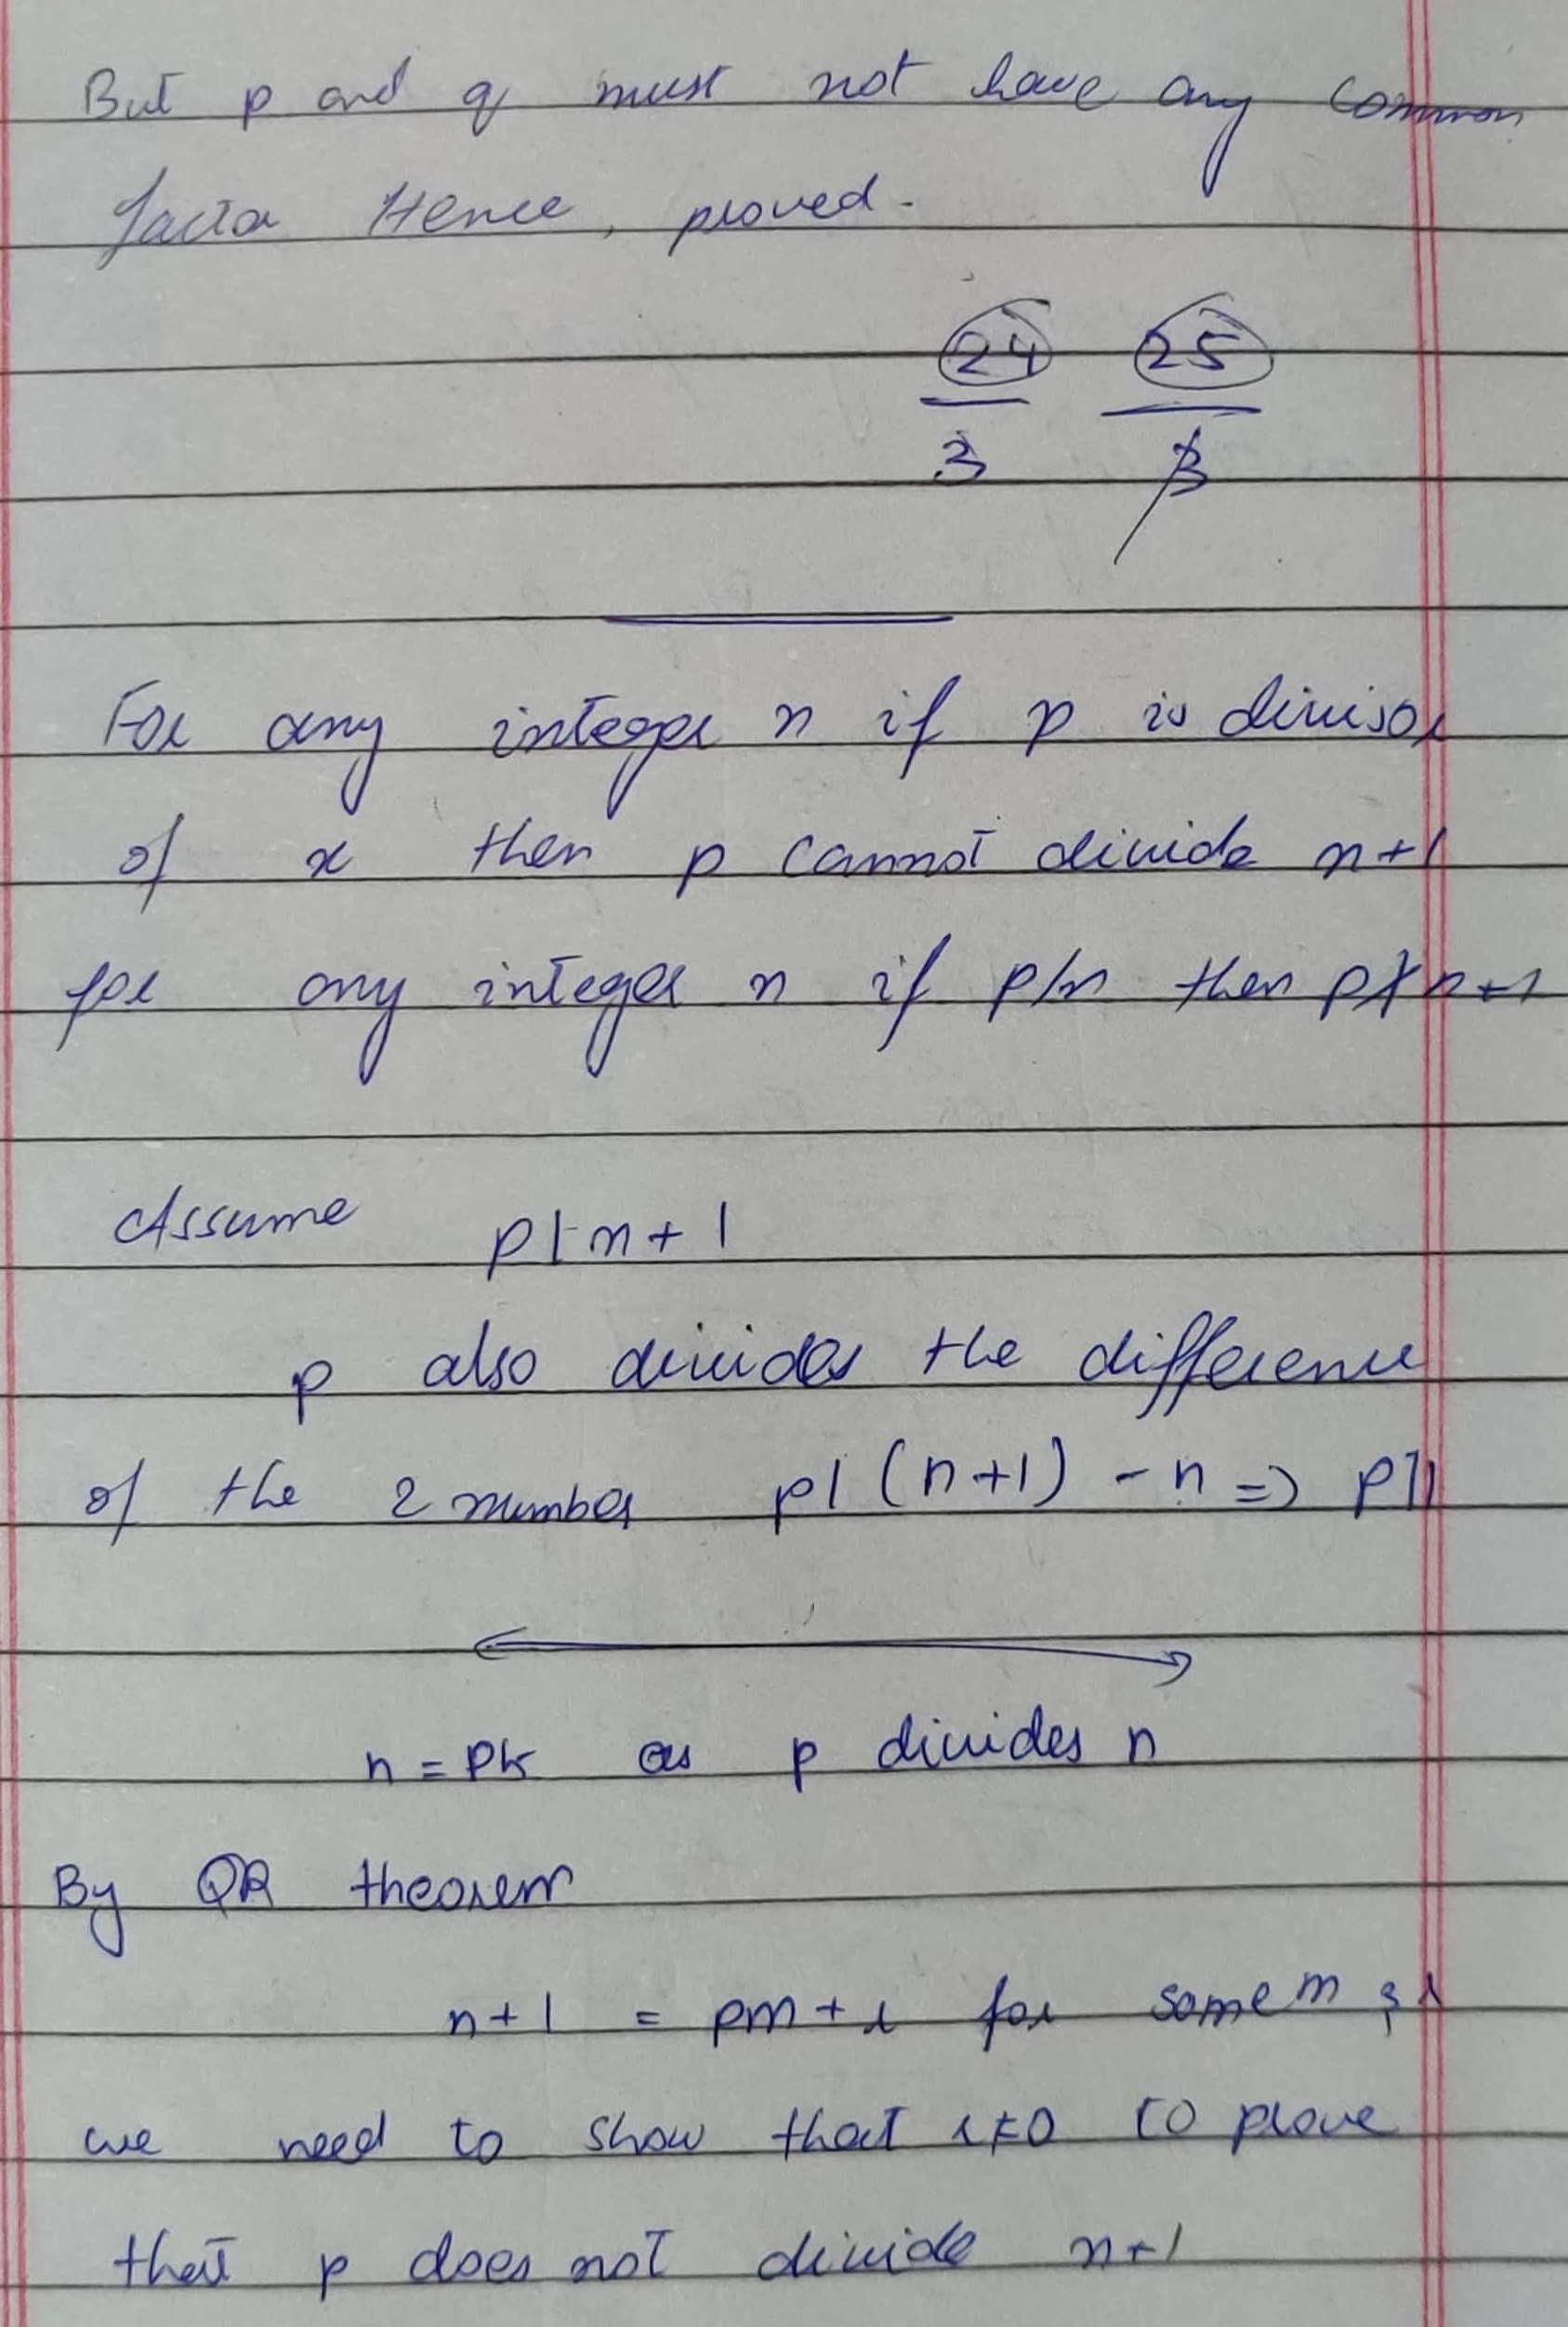 But p and q must not have any common
factor Hence, proved.
24 25
3 3
For any integer n if p is divisor
of x then p cannot divide n+1
for any integer n if p/n then p∤n+1
Assume p|n+1
p also divides the difference
of the 2 number p|(n+1)-n => p|1
n = pk as p divides n
By QR theorem
n+1 = pm + r for some m, r
we need to show that r≠0 to prove
that p does not divide n+1